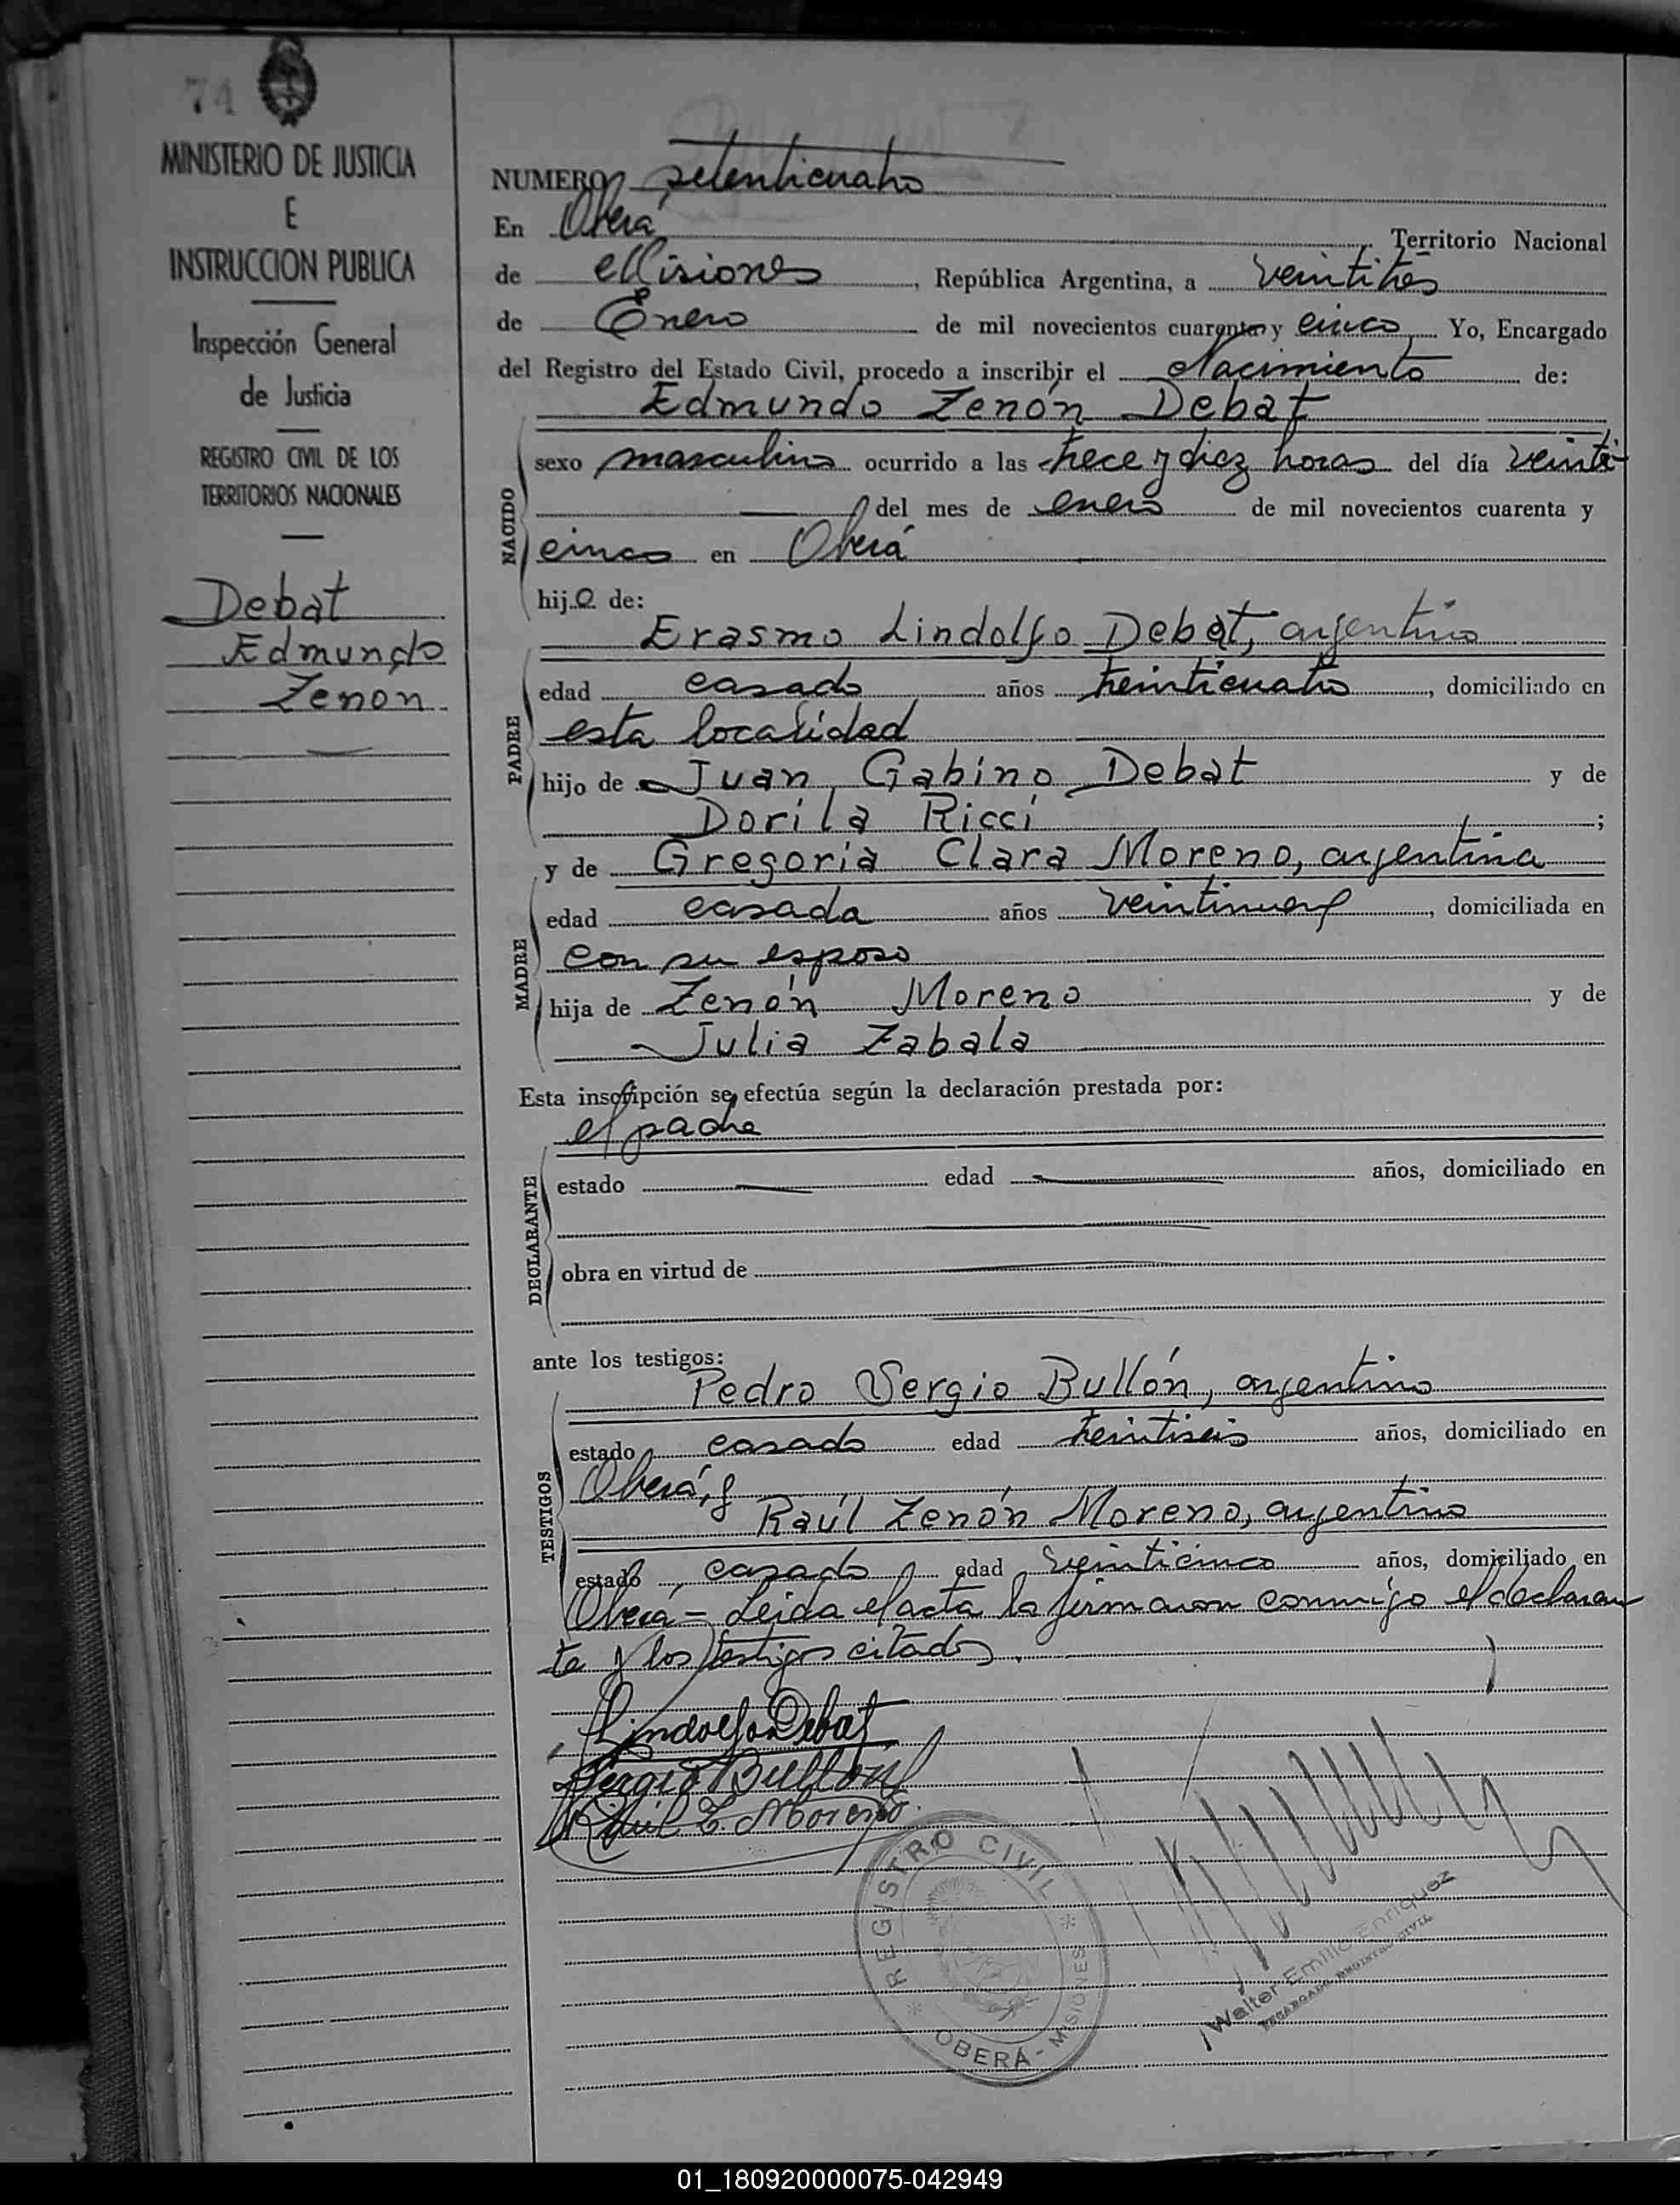 74
MINISTERIO DE JUSTICIA
E
INSTRUCCION PUBLICA
Inspección General
de Justicia
REGISTRO CIVIL DE LOS
TERRITORIOS NACIONALES
Debat
Edmundo
Zenon
NUMERO setenticuatro
En Oberá, Territorio Nacional
de Misiones, República Argentina, a veintitrés
de Enero de mil novecientos cuarenta y cinco Yo, Encargado
del Registro del Estado Civil, procedo a inscribir el Nacimiento de:
Edmundo Zenón Debat
NACIDO
sexo masculino ocurrido a las trece y diez horas del día veinte
del mes de enero de mil novecientos cuarenta y
cinco en Oberá
hijo de:
Erasmo Lindolfo Debat, argentino
PADRE
edad casado años treinticuatro, domiciliado en
esta localidad
hijo de Juan Gabino Debat y de
Dorila Ricci;
y de Gregoria Clara Moreno, argentina
MADRE
edad casada años veintinueve, domiciliada en
con su esposo
hija de Zenón Moreno y de
Julia Zabala
Esta inscripción se efectúa según la declaración prestada por:
el padre
DECLARANTE
estado edad años, domiciliado en
obra en virtud de
ante los testigos:
Pedro Sergio Bullón, argentino
TESTIGOS
estado casado edad treintiseis años, domiciliado en
Oberá, y
Raúl Zenón Moreno, argentino
estado casado edad veinticinco años, domiciliado en
Oberá = Leida el acta la firmaron conmigo el declaran
te y los testigos citados.
Lindolfo Debat
Sergio Bullón
Raúl Z. Moreno
REGISTRO CIVIL
OBERÁ - MISIONES
Walter Emilio Enriquez
ENCARGADO REGISTRO CIVIL
01_180920000075-042949